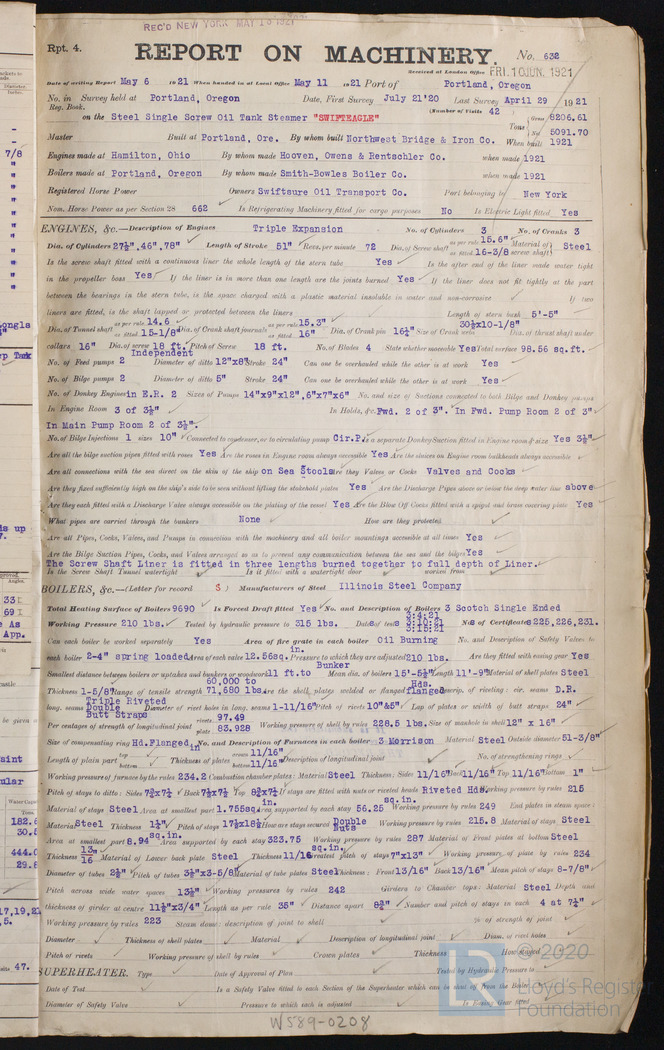 REC'D NEW YORK MAY 16 1921
Rpt. 4.
REPORT ON MACHINERY.
No. 632
Received at London Office FRI. 10 JUN. 1921
Date of writing Report May 6 1921 When handed in at Local Office May 11 1921 Port of Portland, Oregon
No. in Survey held at Portland, Oregon Date, First Survey July 21'20 Last Survey April 29 1921
Reg. Book. (Number of Visits 42
on the Steel Single Screw Oil Tank Steamer "SWIFTEAGLE"
Tons Gross 8206.61
Net 5091.70
Master Built at Portland, Ore. By whom built Northwest Bridge & Iron Co. When built 1921
Engines made at Hamilton, Ohio By whom made Hooven, Owens & Rentschler Co. when made 1921
Boilers made at Portland, Oregon By whom made Smith-Bowles Boiler Co. when made 1921
Registered Horse Power Owners Swiftsure Oil Transport Co. Port belonging to New York
Nom. Horse Power as per Section 28 662 Is Refrigerating Machinery fitted for cargo purposes No Is Electric Light fitted Yes
ENGINES, &c.—Description of Engines Triple Expansion No. of Cylinders 3 No. of Cranks 3
Dia. of Cylinders 27½", 46", 78" Length of Stroke 51" Revs. per minute 72 Dia. of Screw shaft as per rule 15.6" as fitted 16-3/8 Material of screw shaft Steel
Is the screw shaft fitted with a continuous liner the whole length of the stern tube Yes Is the after end of the liner made water tight
in the propeller boss Yes If the liner is in more than one length are the joints burned Yes If the liner does not fit tightly at the part
between the bearings in the stern tube, is the space charged with a plastic material insoluble in water and non-corrosive If two
liners are fitted, is the shaft lapped or protected between the liners Length of stern bush 5'-5"
Dia. of Tunnel shaft as per rule 14.6 as fitted 15-1/8" Dia. of Crank shaft journals as per rule 15.3" as fitted 16" Dia. of Crank pin 16½ Size of Crank webs 30½x10-1/8" Dia. of thrust shaft under
collars 16" Dia. of screw 18 ft. Pitch of Screw 18 ft. No. of Blades 4 State whether moveable Yes Total surface 98.56 sq.ft.
Independent
No. of Feed pumps 2 Diameter of ditto 12"x8" Stroke 24" Can one be overhauled while the other is at work Yes
No. of Bilge pumps 2 Diameter of ditto 5" Stroke 24" Can one be overhauled while the other is at work Yes
No. of Donkey Engines in E.R. 2 Sizes of Pumps 14"x9"x12", 6"x7"x6" No. and size of Suctions connected to both Bilge and Donkey pumps
In Engine Room 3 of 3½" In Holds, &c. Fwd. 2 of 3". In Fwd. Pump Room 2 of 3"
In Main Pump Room 2 of 3½".
No. of Bilge Injections 1 sizes 10" Connected to condenser, or to circulating pump Cir.P. Is a separate Donkey Suction fitted in Engine room & size Yes 3½"
Are all the bilge suction pipes fitted with roses Yes Are the roses in Engine room always accessible Yes Are the sluices on Engine room bulkheads always accessible
Are all connections with the sea direct on the skin of the ship on Sea Stools Are they Valves or Cocks Valves and Cocks
Are they fixed sufficiently high on the ship's side to be seen without lifting the stokehold plates Yes Are the Discharge Pipes above or below the deep water line above
Are they each fitted with a Discharge Valve always accessible on the plating of the vessel Yes Are the Blow Off Cocks fitted with a spigot and brass covering plate Yes
What pipes are carried through the bunkers None How are they protected
Are all Pipes, Cocks, Valves, and Pumps in connection with the machinery and all boiler mountings accessible at all times Yes
Are the Bilge Suction Pipes, Cocks, and Valves arranged so as to prevent any communication between the sea and the bilges Yes
The Screw Shaft Liner is fitted in three lengths burned together to full depth of Liner.
Is the Screw Shaft Tunnel watertight Is it fitted with a watertight door worked from
BOILERS, &c.—(Letter for record S) Manufacturers of Steel Illinois Steel Company
Total Heating Surface of Boilers 9690 Is Forced Draft fitted Yes No. and Description of Boilers 3 Scotch Single Ended
Working Pressure 210 lbs. Tested by hydraulic pressure to 315 lbs. Dates of tests 3:4:21 3:10:21 3:18:21 No.s of Certificates 225,226,231.
Can each boiler be worked separately Yes Area of fire grate in each boiler Oil Burning No. and Description of Safety Valves to
each boiler 2-4" spring loaded Area of each valve 12.56 sq. in. Pressure to which they are adjusted 210 lbs. Are they fitted with easing gear Yes
Smallest distance between boilers or uptakes and bunkers or woodwork 11 ft. to Bunker Mean dia. of boilers 15'-5½" Length 11'-9" Material of shell plates Steel
Thickness 1-5/8" Range of tensile strength 60,000 to 71,680 lbs. Are the shell plates welded or flanged Hds. flanged Descrip. of riveting: cir. seams D.R.
long. seams Triple Riveted Double Butt Straps Diameter of rivet holes in long. seams 1-11/16" Pitch of rivets 10"&5" Lap of plates or width of butt straps 24"
Per centages of strength of longitudinal joint rivets 97.49 plate 83.928 Working pressure of shell by rules 228.5 lbs. Size of manhole in shell 12" x 16"
Size of compensating ring Hd. Flanged in No. and Description of Furnaces in each boiler 3 Morrison Material Steel Outside diameter 51-3/8"
Length of plain part top bottom Thickness of plates crown 11/16" bottom 11/16" Description of longitudinal joint No. of strengthening rings
Working pressure of furnace by the rules 234.2 Combustion chamber plates: Material Steel Thickness: Sides 11/16" Back 11/16" Top 11/16" Bottom 1"
Pitch of stays to ditto: Sides 7¾x7½ Back 7½x7½ Top 8¾x7½ If stays are fitted with nuts or riveted heads Riveted Hds. Working pressure by rules 215
Material of stays Steel Area at smallest part 1.755 sq. in. Area supported by each stay 56.25 sq.in. Working pressure by rules 249 End plates in steam space:
Material Steel Thickness 1¼" Pitch of stays 17½x18½ How are stays secured Double Nuts Working pressure by rules 215.8 Material of stays Steel
Area at smallest part 8.94 sq.in. Area supported by each stay 323.75 Working pressure by rules 287 Material of Front plates at bottom Steel
Thickness 13/16" Material of Lower back plate Steel Thickness 11/16 Greatest pitch of stays 7"x13" Working pressure of plate by rules 234
Diameter of tubes 2½" Pitch of tubes 3½"x3-5/8" Material of tube plates Steel Thickness: Front 13/16" Back 13/16" Mean pitch of stays 8-7/8"
Pitch across wide water spaces 13½" Working pressures by rules 242 Girders to Chamber tops: Material Steel Depth and
thickness of girder at centre 11½"x3/4" Length as per rule 35" Distance apart 8¾" Number and pitch of stays in each 4 at 7½"
Working pressure by rules 223 Steam dome: description of joint to shell % of strength of joint
Diameter Thickness of shell plates Material Description of longitudinal joint Diam. of rivet holes
Pitch of rivets Working pressure of shell by rules Crown plates Thickness How stayed
SUPERHEATER. Type Date of Approval of Plan Tested by Hydraulic Pressure to
Date of Test Is a Safety Valve fitted to each Section of the Superheater which can be shut off from the Boiler
Diameter of Safety Valve Pressure to which each is adjusted Is Easing Gear fitted
W589-0208
© 2020
LR
Lloyd's Register
Foundation